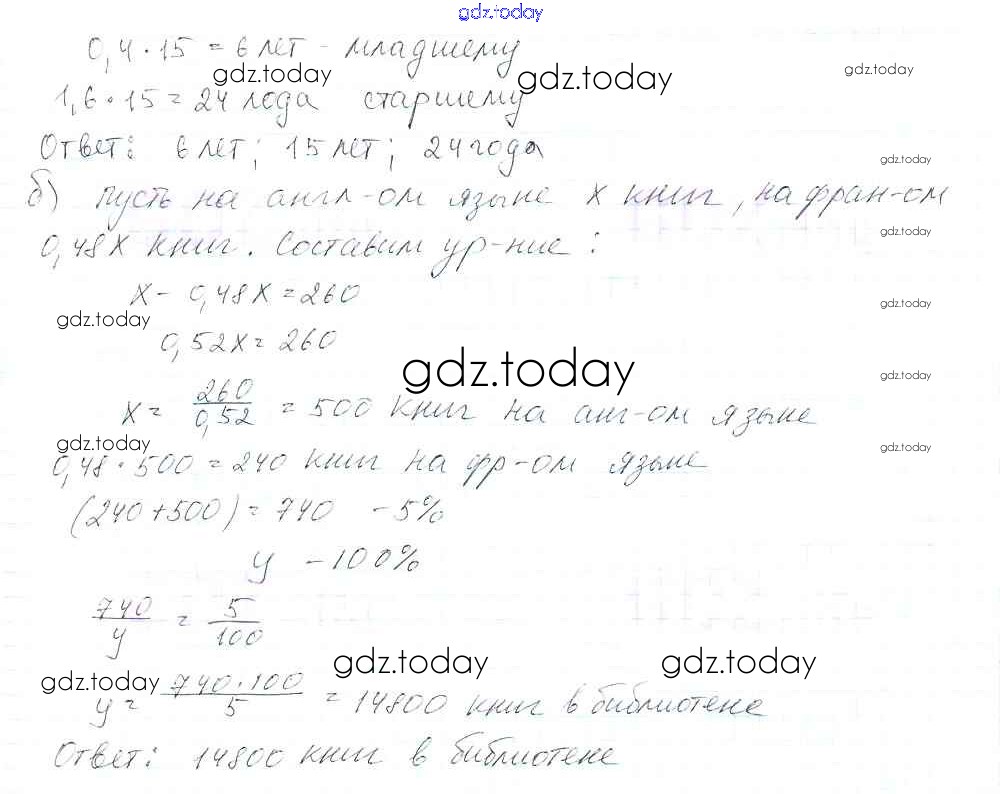 gdz.today
0,4 · 15 = 6 лет - младшему
gdz.today gdz.today gdz.today
1,6 · 15 = 24 года старшему
Ответ: 6 лет; 15 лет; 24 года
gdz.today
б) пусть на англ-ом языке x книг, на фран-ом
gdz.today
0,48x книг. Составим ур-ние:
x - 0,48x = 260
gdz.today
gdz.today
0,52x = 260
gdz.today
gdz.today
x = 260/0,52 = 500 книг на анг-ом языке
gdz.today
gdz.today
0,48 · 500 = 240 книг на фр-ом языке
(240+500) = 740 - 5%
y - 100%
740/y = 5/100
gdz.today gdz.today
gdz.today
y = 740·100/5 = 14800 книг в библиотеке
Ответ: 14800 книг в библиотеке